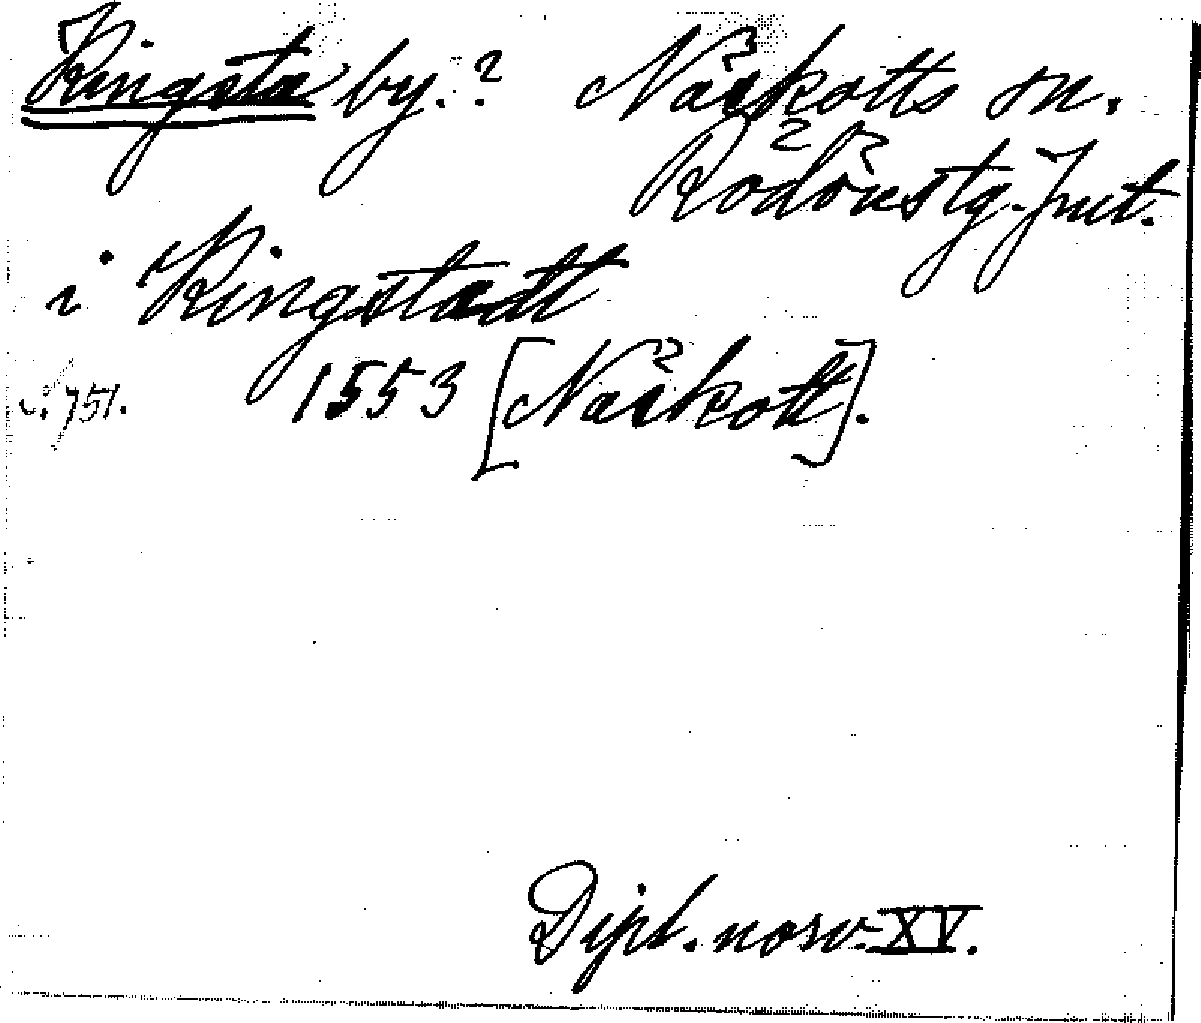 Kingsta by.? Näskotts sn.
Rödöns tg. Jmt.
i Kingstadt
s. 751. 1553 [Näskott].
Dipl. norv. XV.